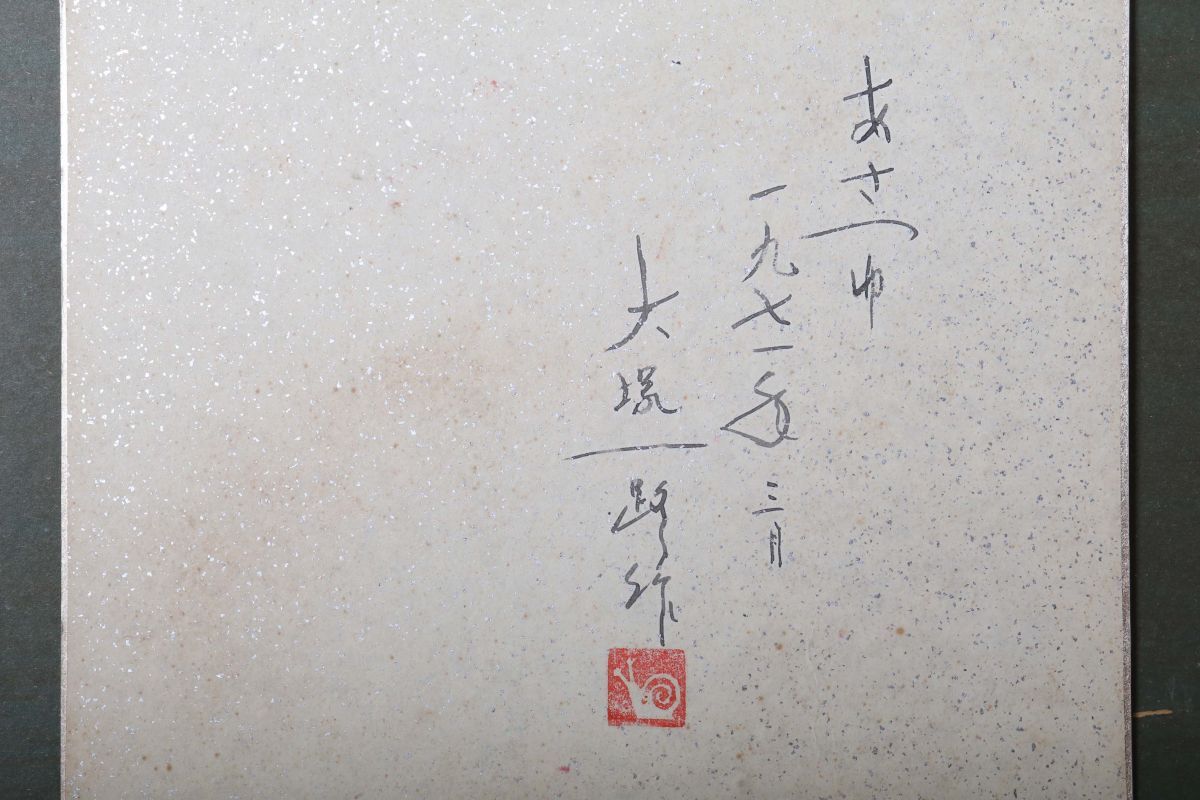 あさつゆ
一九七一年 三月
大塚一路作